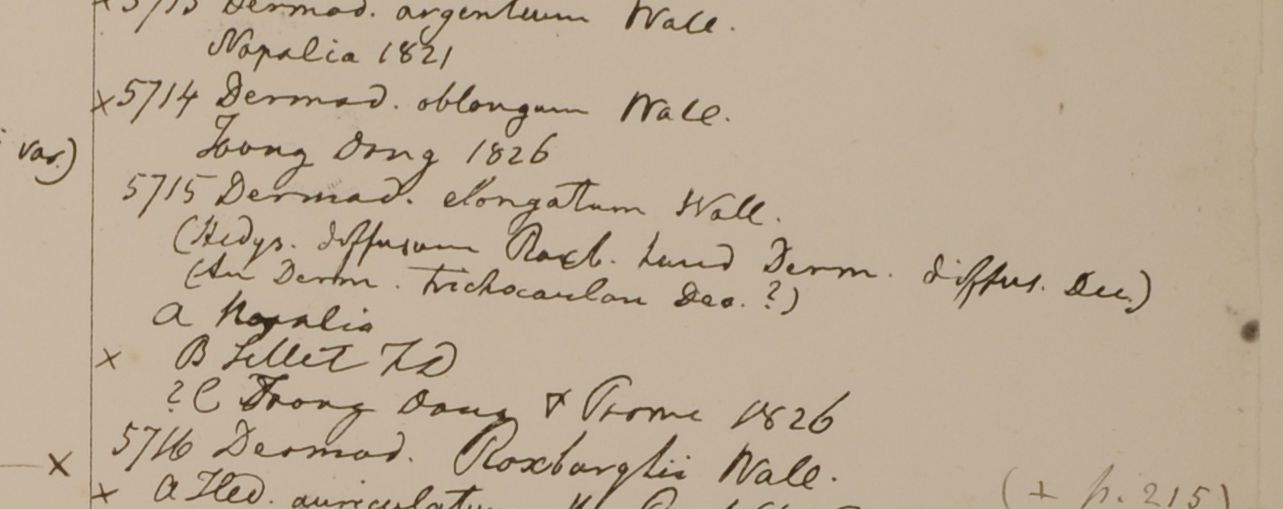 x 5713 Dermod. argenteum Wall.
Napalia 1821
x 5714 Dermod. oblongum Wall.
Toong Dong 1826
var.)
5715 Dermod. elongatum Wall.
(Hedys. diffusum Roxb. haud Derm. diffus. Dec.)
(An Derm. trichocaulon Dec. ?)
a Napalia
x B Sillet FD
? C Toong Dong & Prome 1826
5716 Dermod. Roxburghii Wall.
x
x a Hed. auriculatum
(+ p. 215)